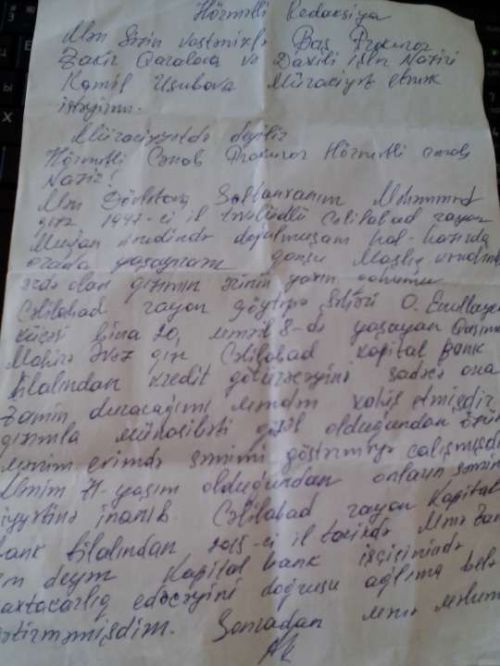 Hörmətli Redaksiya
Mən Sizin vasitənizlə Baş Prokuror
Zakir Qaralova və Daxili işlər Naziri
Kamil Usubova Müraciyət etmək
istəyirəm.
Müraciyətdə deyilir
Hörmətli Cənab Prokuror Hörmətli cənab
Nazir!
Mən Dövlətova Soltanxanım Məhəmməd
qızı 1947-ci il təvəllüdlü Cəlilabad rayon
Muğan kəndində doğulmuşam hal-hazırda
orada yaşayıram qonşu Maşlıq kəndində
ərdə olan qızımın ərinin yaxın qohumu
Cəlilabad rayon göytəpə şəhəri O.
küçəsi bina 20, mənzil 8-də yaşayan Qasımo
Mahirə Əvəz qızı Cəlilabad kapital Bank
filalından kredit götürəcəyini sadəcə ona
zamin duracağımı məndən xahiş etmişdir
qızımla münasibəti gözəl olduğundan özün
mənim evimdə səmimi göstərməyə çalışmışdı
Mənim 71-yaşım olduğundan onların səmim
iyyətinə inanıb Cəlilabad rayon Kapital
bank filalından 2015-ci il tarixdə Mənə zam
in deyən Kapital bank işçisinində
axtacarlıq edəcəyini doğrusu ağlıma belə
gətirməmişdim. Sonradan mənə məlum